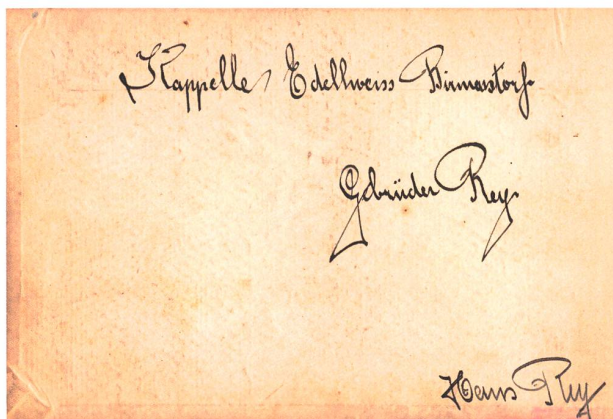 Kappelle Edellweiss Birmesstorf
Gebrüder Rey.
Hans Rey